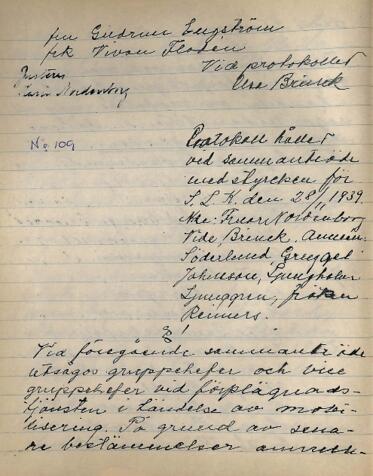 fru Gudrun Engström
frk Vivan Floden
Vid protokollet
Justeras
Karin Nordenborg
Elsa Brinck
No 109
Protokoll hållet
vid sammanträde
med styrelsen för
S. L. K. den 28/11 1939.
När: Fruar Nordenborg
Vide, Brinck,
Söderlund,
Johnsson, Ljungholm
Ljunggren, fröken
Reimers.
§ 1
Vid föregående sammanträde
utsågos gruppchefer och vice
gruppchefer vid förplägnads-
tjänsten i händelse av mobi-
lisering. På grund av sena-
re bestämmelser